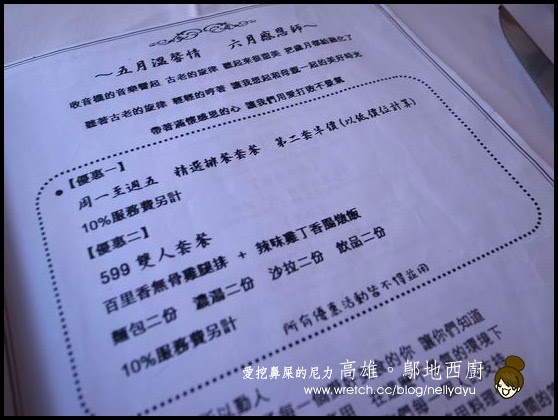 ～五月溫馨情 六月感恩師～
收音機的音樂響起 古老的旋律 聽起來很甜美 把歲月都給融化了
聽著古老的旋律 輕輕的哼著 讓我想起和母親一起的美好時光
帶著滿懷感恩的心 讓我們用愛打敗不景氣
●【優惠一】
周一至週五 精選排餐套餐 第二套半價(以低價位計算)
10%服務費另計
【優惠二】
599 雙人套餐
百里香無骨雞腿排 + 辣味雞丁香腸燉飯
麵包二份 濃湯二份 沙拉二份 飲品二份
10%服務費另計 所有優惠活動皆不得並用
的你 讓你們知道
的環境下
以動人
愛挖鼻屎的尼力 高雄。鄔地西廚
www.wretch.cc/blog/nellydyu